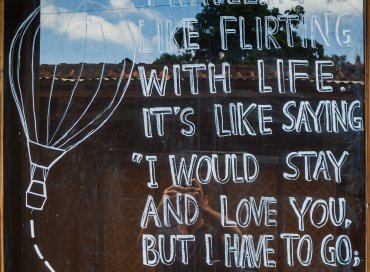 LIKE FLIRTING
WITH LIFE.
IT'S LIKE SAYING
"I WOULD STAY
AND LOVE YOU,
BUT I HAVE TO GO;